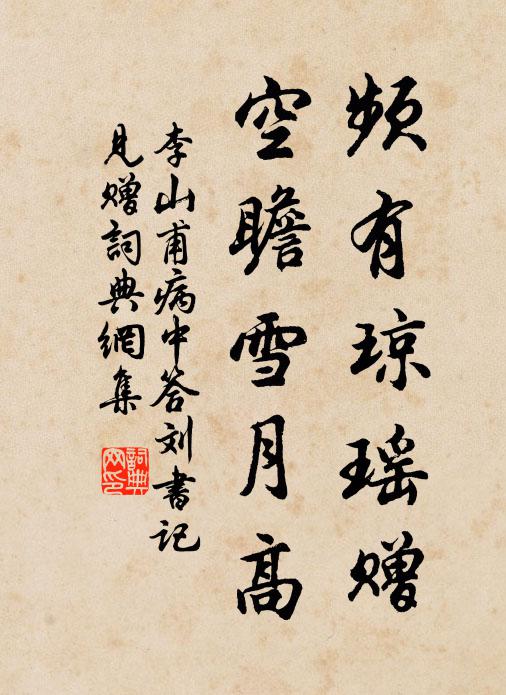 频有琼瑶赠
空瞻雪月高
李山甫病中答刘书记
见赠詞典網集
詞典網印